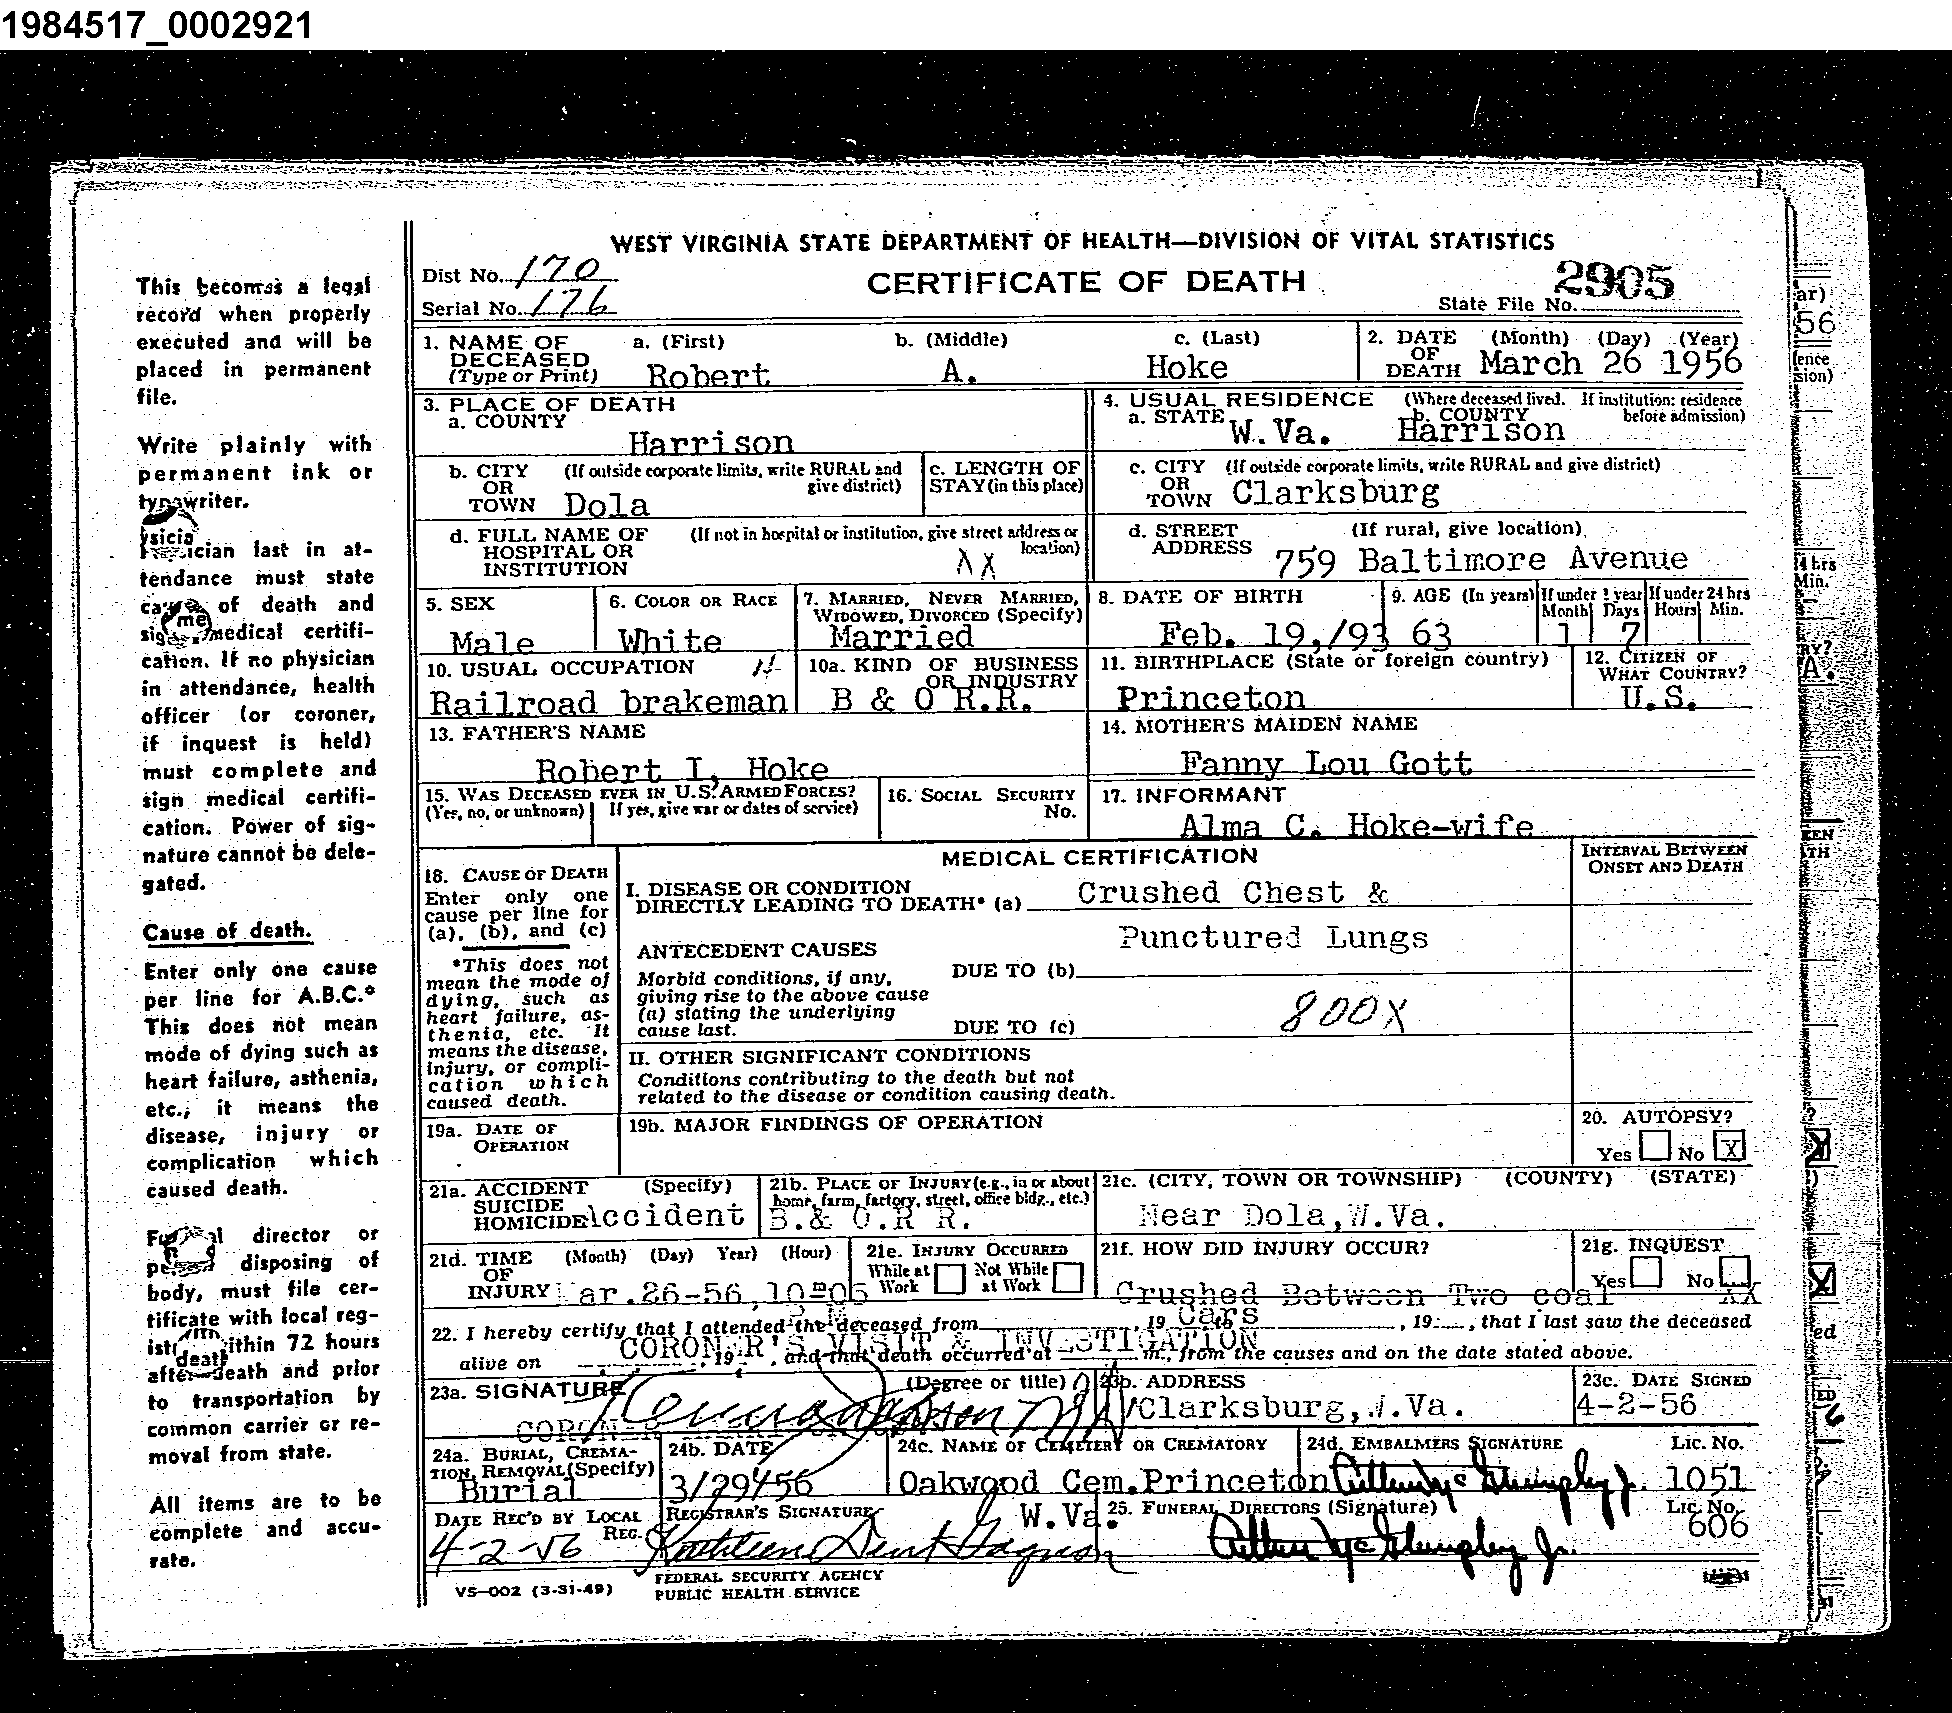 1984517_0002921
WEST VIRGINIA STATE DEPARTMENT OF HEALTH—DIVISION OF VITAL STATISTICS
CERTIFICATE OF DEATH
Dist No. 170
Serial No. 176
2905
State File No.
This becomes a legal
record when properly
executed and will be
placed in permanent
file.
Write plainly with
permanent ink or
typewriter.
ician last in at-
tendance must state
of death and
medical certifi-
cation. If no physician
in attendance, health
officer (or coroner,
if inquest is held)
must complete and
sign medical certifi-
cation. Power of sig-
nature cannot be dele-
gated.
Cause of death.
Enter only one cause
per line for A.B.C.*
This does not mean
mode of dying such as
heart failure, asthenia,
etc., it means the
disease, injury or
complication which
caused death.
director or
disposing of
body, must file cer-
tificate with local reg-
within 72 hours
after death and prior
to transportation by
common carrier or re-
moval from state.
All items are to be
complete and accu-
rate.
1. NAME OF DECEASED (Type or Print)
a. (First) Robert
b. (Middle) A.
c. (Last) Hoke
2. DATE OF DEATH (Month) (Day) (Year)
March 26 1956
3. PLACE OF DEATH
a. COUNTY Harrison
4. USUAL RESIDENCE (Where deceased lived. If institution: residence before admission)
a. STATE W.Va.
b. COUNTY Harrison
b. CITY OR TOWN (If outside corporate limits, write RURAL and give district)
Dola
c. LENGTH OF STAY (in this place)
c. CITY OR TOWN (If outside corporate limits, write RURAL and give district)
Clarksburg
d. FULL NAME OF HOSPITAL OR INSTITUTION (If not in hospital or institution, give street address or location)
XX
d. STREET ADDRESS (If rural, give location)
759 Baltimore Avenue
5. SEX
Male
6. COLOR OR RACE
White
7. MARRIED, NEVER MARRIED, WIDOWED, DIVORCED (Specify)
Married
8. DATE OF BIRTH
Feb. 19,/93
9. AGE (In years)
63
If under 1 year
Month Days
1 7
If under 24 hrs
Hours Min.
10. USUAL OCCUPATION
Railroad brakeman
10a. KIND OF BUSINESS OR INDUSTRY
B & O R.R.
11. BIRTHPLACE (State or foreign country)
Princeton
12. CITIZEN OF WHAT COUNTRY?
U.S.
13. FATHER'S NAME
Robert I. Hoke
14. MOTHER'S MAIDEN NAME
Fanny Lou Gott
15. WAS DECEASED EVER IN U.S. ARMED FORCES?
(Yes, no, or unknown) If yes, give war or dates of service)
16. SOCIAL SECURITY No.
17. INFORMANT
Alma C. Hoke-wife
18. CAUSE OF DEATH
Enter only one
cause per line for
(a), (b), and (c)
*This does not
mean the mode of
dying, such as
heart failure, as-
thenia, etc. It
means the disease,
injury, or compli-
cation which
caused death.
MEDICAL CERTIFICATION
INTERVAL BETWEEN ONSET AND DEATH
I. DISEASE OR CONDITION
DIRECTLY LEADING TO DEATH* (a) Crushed Chest &
Punctured Lungs
ANTECEDENT CAUSES
Morbid conditions, if any,
giving rise to the above cause
(a) stating the underlying
cause last.
DUE TO (b)
DUE TO (c)
800X
II. OTHER SIGNIFICANT CONDITIONS
Conditions contributing to the death but not
related to the disease or condition causing death.
19a. DATE OF OPERATION
19b. MAJOR FINDINGS OF OPERATION
20. AUTOPSY?
Yes No X
21a. ACCIDENT SUICIDE HOMICIDE (Specify)
Accident
21b. PLACE OF INJURY (e.g., in or about home, farm, factory, street, office bldg., etc.)
B.& O.R R.
21c. (CITY, TOWN OR TOWNSHIP) (COUNTY) (STATE)
Near Dola,W.Va.
21d. TIME OF INJURY (Month) (Day) Year) (Hour)
Mar.26-56,10-05
21e. INJURY OCCURRED
While at Work Not While at Work
21f. HOW DID INJURY OCCUR?
Crushed Between Two coal
Cars
21g. INQUEST
Yes No
XX
22. I hereby certify that I attended the deceased from , 19 to , 19 , that I last saw the deceased
CORONER'S VISIT & INVESTIGATION
alive on , 19 , and that death occurred at m., from the causes and on the date stated above.
23a. SIGNATURE (Degree or title)
23b. ADDRESS
Clarksburg,W.Va.
23c. DATE SIGNED
4-2-56
24a. BURIAL, CREMATION, REMOVAL (Specify)
Burial
24b. DATE
3/29/56
24c. NAME OF CEMETERY OR CREMATORY
Oakwood Cem.Princeton
W.Va.
24d. EMBALMERS SIGNATURE
Lic. No.
1051
DATE REC'D BY LOCAL REG.
4-2-56
REGISTRAR'S SIGNATURE
Kathleen Dent
25. FUNERAL DIRECTORS (Signature)
Lic. No.
606
VS—002 (3-31-49)
FEDERAL SECURITY AGENCY
PUBLIC HEALTH SERVICE